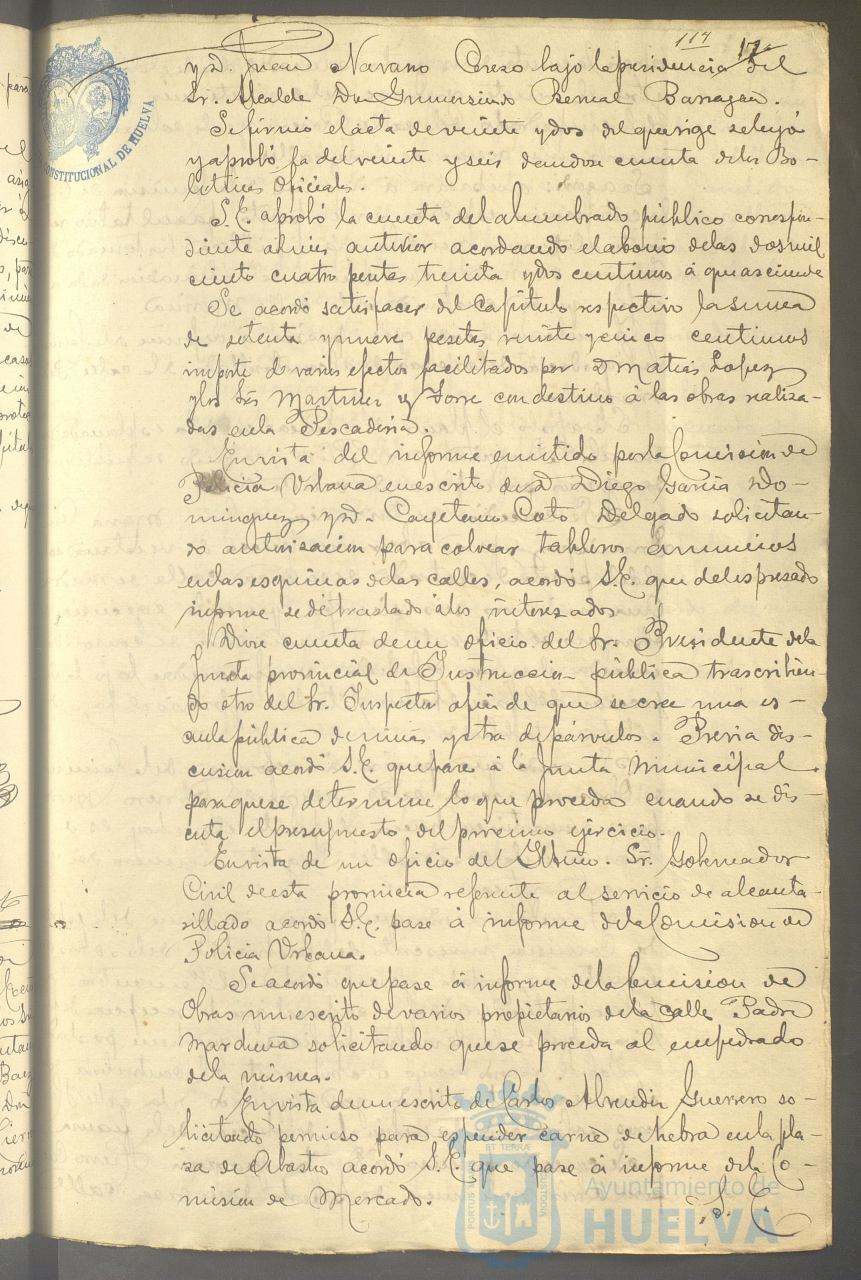 117 17
y D. Juan Navarro Cerezo bajo la presidencia del
Sr. Alcalde Don Gumersindo Bernal Barragan.
Se firmó el acta de veinte y dos del que rige se leyó
y aprobó la del veinte y seis dandose cuenta de los Bo-
letines Oficiales.
S.E. aprobó la cuenta del alumbrado público correspon-
diente al mes anterior acordando el abono de las dos mil
ciento cuatro pesetas treinta y dos centimos á que asciende
Se acordó satisfacer del Capítulo respectivo la suma
de setenta y nueve pesetas veinte y cinco centimos
importe de varios efectos facilitados por D. Matias Lopez
y los Sres Martinez y Torre con destino á las obras realiza-
das en la Pescaderia.
En vista del informe emitido por la Comision de
Policia Urbana en escrito de D. Diego Garcia Do-
minguez y D. Cayetano Coto Delgado solicitan-
do autorizacion para colocar tableros anuncios
en las esquinas de las calles, acordó S.E. que del espresado
informe se dé traslado á los interezados
Diose cuenta de un oficio del Sr. Presidente de la
Junta provincial de Instruccion pública trascribien-
do otro del Sr. Inspector afin de que se cree una es-
cuela pública de niñas y otra de párvulos. Previa dis-
cusion acordó S.E. que pase á la Junta Municipal
para que se determine lo que proceda cuando se dis-
cuta el presupuesto del procsimo ejercicio.
En vista de un oficio del Iltmo. Sr. Gobernador
Civil de esta provincia referente al servicio de alcanta-
rillado acordó S.E. pase á informe de la Comision de
Policia Urbana.
Se acordó que pase á informe de la Comision de
Obras un escrito de varios propietarios de la calle Padre
Marchena solicitando que se proceda al empedrado
de la misma.
En vista de un escrito de Carlos Guerrero so-
licitando permiso para espender carne de hebra en la pla-
za de Abasto acordó S.E. que pase á informe de la Co-
mision de Mercado.
S. E.
CONSTITUCIONAL DE HUELVA
PORTUS ET TERRAE CUSTODIA
Ayuntamiento de
HUELVA